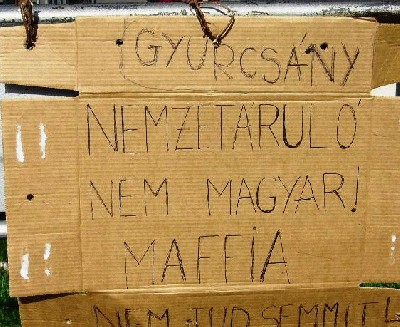 GYURCSÁNY
NEMZETÁRULÓ
NEM MAGYAR!
MAFFIA
NEM TUD SEMMIT